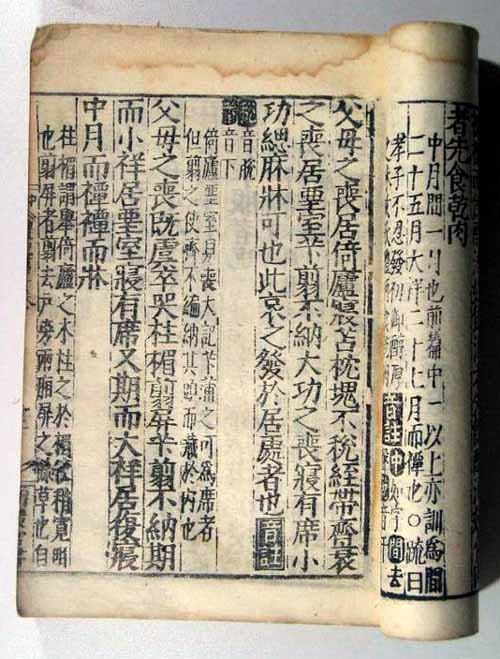 者先食乾肉
中月間一月也前篇中一以上亦訓為間
二十五月大祥二十七月而禫也○疏曰
孝子不忍發初御醇厚
音註中如字間去
父母之喪居倚廬寢苫枕塊不稅絰帶齊衰
之喪居堊室芐翦不納大功之喪寢有席小
功緦麻牀可也此哀之發於居處者也音註
音脫
音下
倚廬堊室見喪大記芐蒲之可為席者
但翦之使齊不編納其頭而藏於內也
父母之喪既虞卒哭柱楣翦屏芐翦不納期
而小祥居堊室寢有席又期而大祥居復寢
中月而禫禫而牀
柱楣謂舉倚廬之木柱之於楣使稍寬明
也翦屏者翦去戶旁兩廂屏之餘草也自